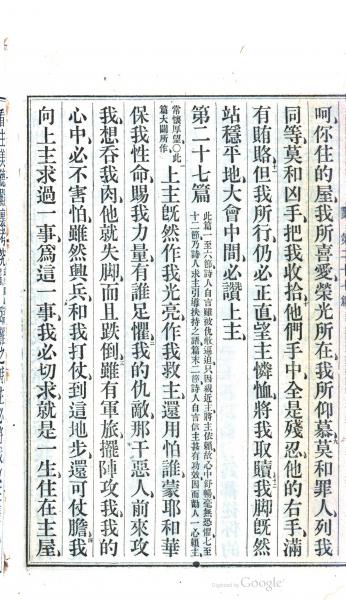 呵你住的屋我所喜愛榮光所在我所仰慕莫和罪人列我
同等莫和凶手把我收拾他們手中全是殘忍他的右手滿
有賄賂但我所行仍必正直望主憐恤將我取贖我脚旣然
站穩平地大會中間必讚上主
第二十七篇
此篇一至六節詩人自言雖被仇敵逼迫只因親近主將主依賴故心中舒暢毫無恐懼七至
十二節乃詩人求主引導扶持之禱篇末二節詩人自言信主甚有功效因而勸人一心賴主
常懷厚望○此
篇大闢所作
上主旣然作我光亮作我救主還用怕誰蒙耶和華
保我性命賜我力量有誰足懼我的仇敵那干惡人前來攻
我想吞我肉他就失脚而且跌倒雖有軍旅擺陣攻我我的
心中必不害怕雖然興兵和我打仗到這地步還可仗膽我
向上主求過一事爲這一事我必切求就是一生住在主屋
Digitized by Google